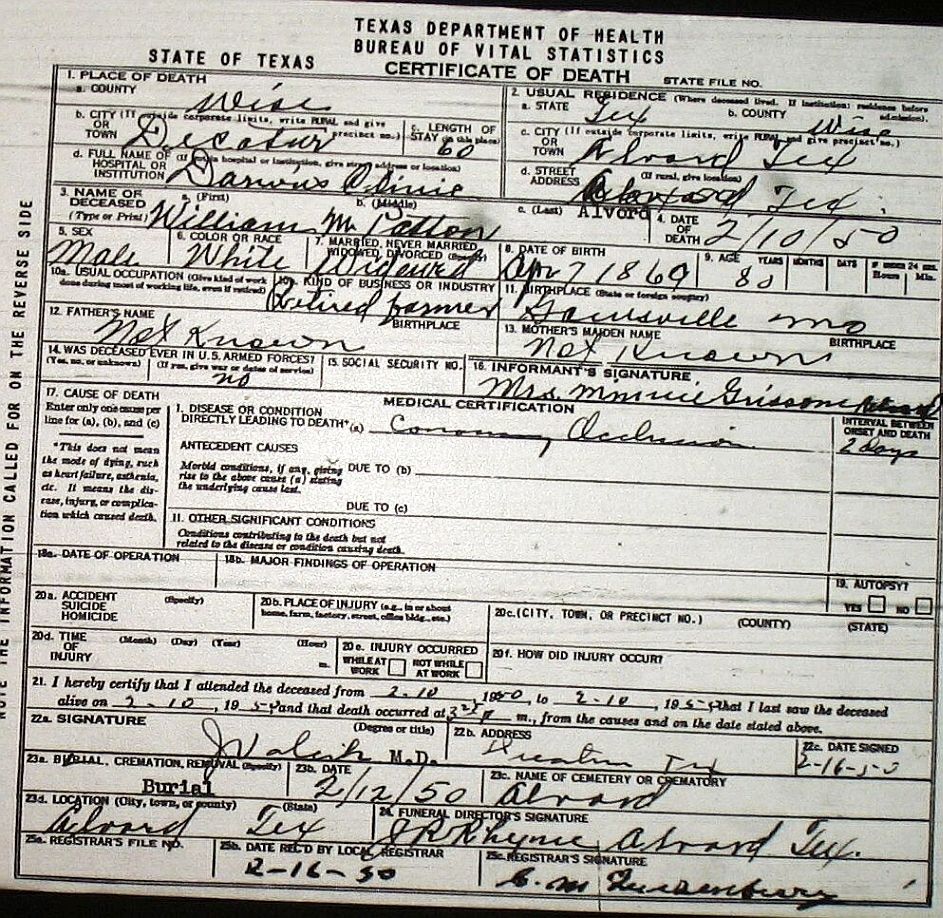 TEXAS DEPARTMENT OF HEALTH
BUREAU OF VITAL STATISTICS
STATE OF TEXAS
CERTIFICATE OF DEATH
STATE FILE NO.
1. PLACE OF DEATH
a. COUNTY Wise
2. USUAL RESIDENCE (Where deceased lived. If institution: residence before admission).
a. STATE Tex b. COUNTY Wise
b. CITY (If outside corporate limits, write RURAL and give precinct no.) OR TOWN Decatur
c. LENGTH OF STAY (in this place) 60
c. CITY (If outside corporate limits, write RURAL and give precinct no.) OR TOWN Alvord Tex
d. FULL NAME OF (If not in hospital or institution, give street address or location) HOSPITAL OR INSTITUTION Clinic
d. STREET ADDRESS (If rural, give location) Tex.
Alvord
3. NAME OF DECEASED (Type or Print)
a. (First) b. (Middle) c. (Last)
William M. Patton
4. DATE OF DEATH 2/10/50
5. SEX Male
6. COLOR OR RACE White
7. MARRIED, NEVER MARRIED, WIDOWED, DIVORCED (Specify) Widowed
8. DATE OF BIRTH Apr 7 1869
9. AGE YEARS MONTHS DAYS IF UNDER 24 HRS. Hours Min.
80
10a. USUAL OCCUPATION (Give kind of work done during most of working life, even if retired)
10b. KIND OF BUSINESS OR INDUSTRY
Retired farmer
11. BIRTHPLACE (State or foreign country)
Gainsville mo
12. FATHER'S NAME BIRTHPLACE
Not Known
13. MOTHER'S MAIDEN NAME BIRTHPLACE
Not Known
14. WAS DECEASED EVER IN U.S. ARMED FORCES?
(Yes, no, or unknown) (If yes, give war or dates of service)
no
15. SOCIAL SECURITY NO.
16. INFORMANT'S SIGNATURE
Mrs. Minnie Grissom
17. CAUSE OF DEATH
Enter only one cause per line for (a), (b), and (c)
*This does not mean the mode of dying, such as heart failure, asthenia, etc. It means the disease, injury, or complication which caused death.
MEDICAL CERTIFICATION
I. DISEASE OR CONDITION
DIRECTLY LEADING TO DEATH* (a) Coronary Occlusion
INTERVAL BETWEEN ONSET AND DEATH
2 days
ANTECEDENT CAUSES
Morbid conditions, if any, giving rise to the above cause (a) stating the underlying cause last.
DUE TO (b)
DUE TO (c)
II. OTHER SIGNIFICANT CONDITIONS
Conditions contributing to the death but not related to the disease or condition causing death.
18a. DATE OF OPERATION
18b. MAJOR FINDINGS OF OPERATION
19. AUTOPSY?
YES NO
20a. ACCIDENT SUICIDE HOMICIDE (Specify)
20b. PLACE OF INJURY (e.g., in or about home, farm, factory, street, office bldg., etc.)
20c. (CITY, TOWN, OR PRECINCT NO.) (COUNTY) (STATE)
20d. TIME OF INJURY (Month) (Day) (Year) (Hour) m.
20e. INJURY OCCURRED
WHILE AT WORK NOT WHILE AT WORK
20f. HOW DID INJURY OCCUR?
21. I hereby certify that I attended the deceased from 2-10, 1950, to 2-10, 19 that I last saw the deceased
alive on 2-10, 19 and that death occurred at m., from the causes and on the date stated above.
22a. SIGNATURE (Degree or title)
M.D.
22b. ADDRESS
Decatur Tex
22c. DATE SIGNED
2-16-50
23a. BURIAL, CREMATION, REMOVAL (Specify)
Burial
23b. DATE
2/12/50
23c. NAME OF CEMETERY OR CREMATORY
Alvord
23d. LOCATION (City, town, or county) (State)
Alvord Tex
24. FUNERAL DIRECTOR'S SIGNATURE
J R Rhyne Alvord Tex.
25a. REGISTRAR'S FILE NO.
25b. DATE REC'D BY LOCAL REGISTRAR
2-16-50
25c. REGISTRAR'S SIGNATURE
THE INFORMATION CALLED FOR ON THE REVERSE SIDE